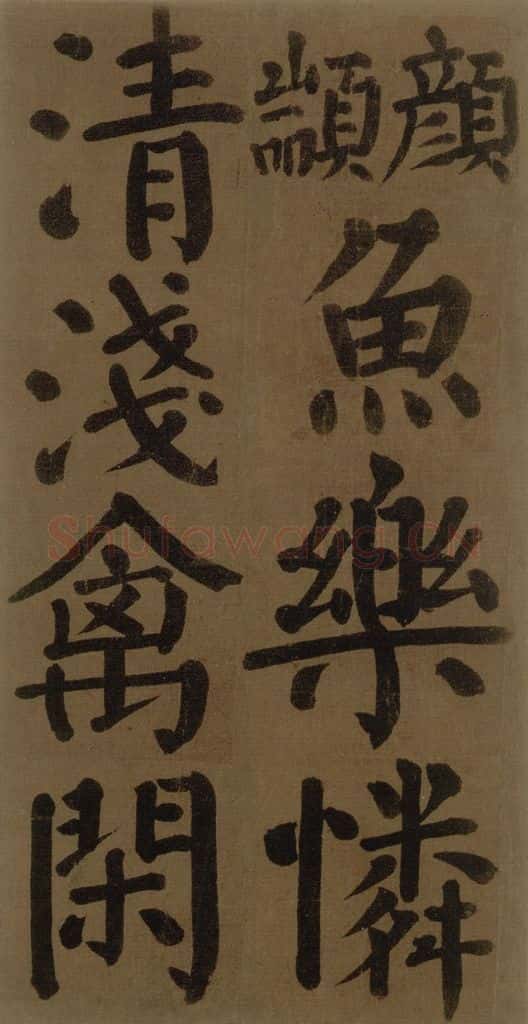 顔
魚樂憐
清淺禽閑
shufawang.cn